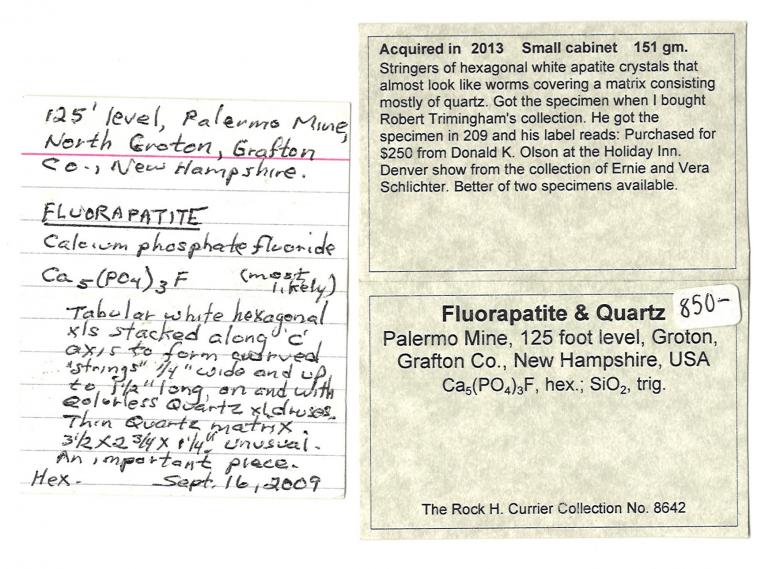 125' level, Palermo Mine,
North Groton, Grafton
Co., New Hampshire.
FLUORAPATITE
Calcium phosphate fluoride
Ca5(PO4)3F (most likely)
Tabular white hexagonal
xls stacked along 'c'
axis to form curved
"strings" 1/4" wide and up
to 1 1/2" long, on and with
colorless Quartz xl druses.
Thin Quartz matrix.
3 1/2 X 2 3/4 X 1 1/4". unusual.
An important piece.
Hex. Sept. 16, 2009
Acquired in 2013 Small cabinet 151 gm.
Stringers of hexagonal white apatite crystals that
almost look like worms covering a matrix consisting
mostly of quartz. Got the specimen when I bought
Robert Trimingham's collection. He got the
specimen in 209 and his label reads: Purchased for
$250 from Donald K. Olson at the Holiday Inn.
Denver show from the collection of Ernie and Vera
Schlichter. Better of two specimens available.
Fluorapatite & Quartz 850-
Palermo Mine, 125 foot level, Groton,
Grafton Co., New Hampshire, USA
Ca5(PO4)3F, hex.; SiO2, trig.
The Rock H. Currier Collection No. 8642